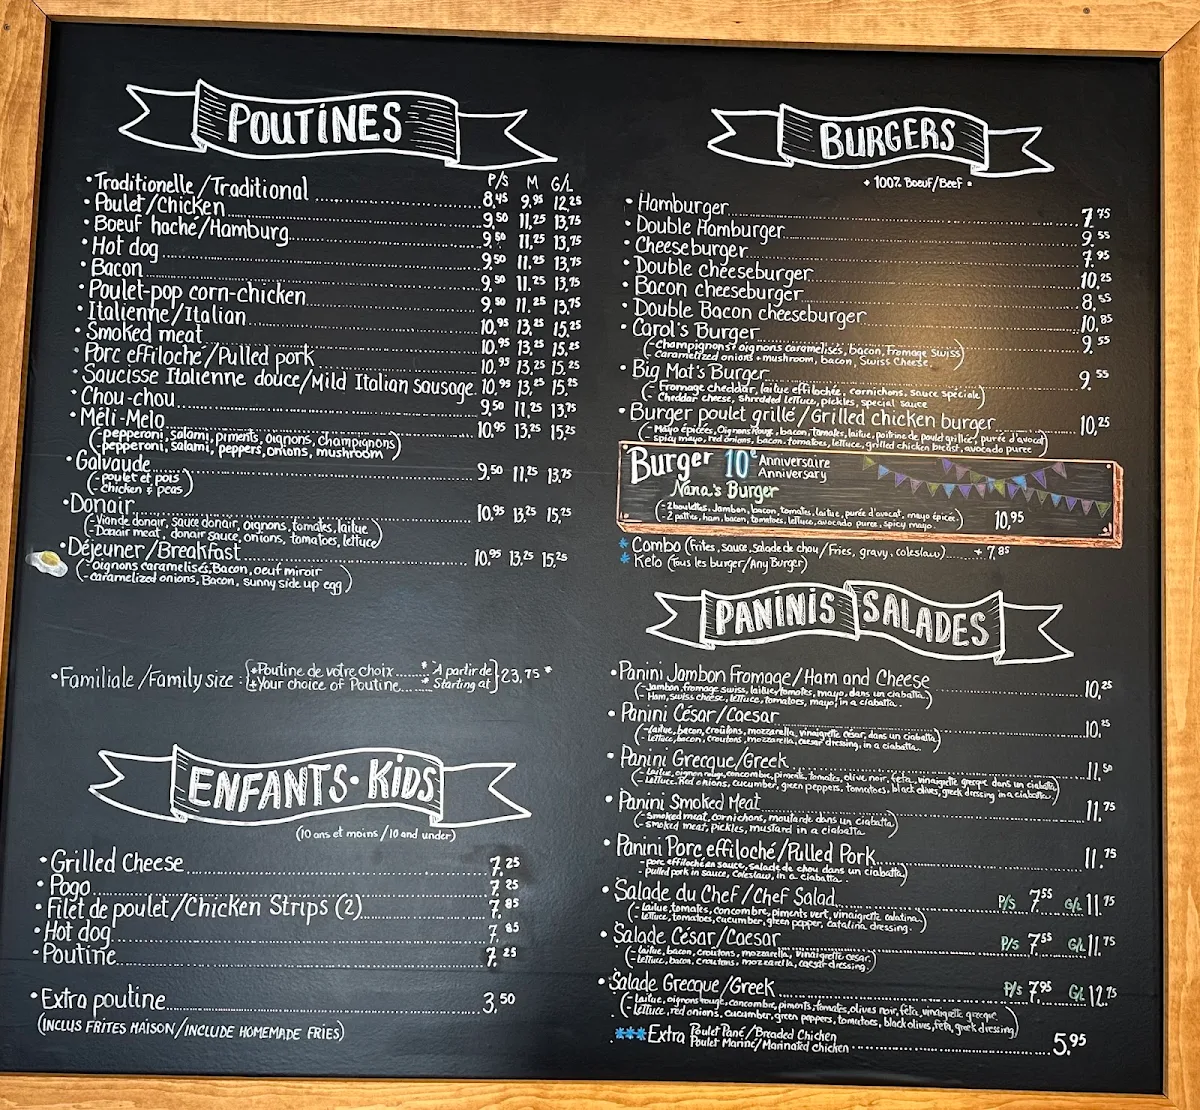 POUTINES
P/S M G/L
• Traditionelle/Traditional 8,45 9,95 12,25
• Poulet/Chicken 9,50 11,25 13,75
• Boeuf haché/Hamburg 9,50 11,25 13,75
• Hot dog 9,50 11,25 13,75
• Bacon 9,50 11,25 13,75
• Poulet-pop corn-chicken 9,50 11,25 13,75
• Italienne/Italian 10,95 13,25 15,25
• Smoked meat 10,95 13,25 15,25
• Porc effiloché/Pulled pork 10,95 13,25 15,25
• Saucisse Italienne douce/Mild Italian sausage 10,95 13,25 15,25
• Chou-chou 9,50 11,25 13,75
• Méli-Melo 10,95 13,25 15,25
(-pepperoni, salami, piments, oignons, champignons)
-pepperoni, salami, peppers, onions, mushroom)
• Galvaude 9,50 11,25 13,75
(-poulet et pois
-chicken & peas)
• Donair 10,95 13,25 15,25
(-Viande donair, sauce donair, oignons, tomates, laitue
-Donair meat, donair sauce, onions, tomatoes, lettuce)
• Déjeuner/Breakfast 10,95 13,25 15,25
(-oignons caramelisés, Bacon, oeuf miroir
-caramelized onions, Bacon, sunny side up egg)
• Familiale/Family size : {*Poutine de votre choix * À partir de} 23,75 *
*Your choice of Poutine * Starting at
ENFANTS • KIDS
(10 ans et moins/10 and under)
• Grilled Cheese 7,25
• Pogo 7,25
• Filet de poulet/Chicken Strips (2) 7,85
• Hot dog 7,85
• Poutine 7,25
• Extra poutine 3,50
(INCLUS FRITES MAISON/INCLUDE HOMEMADE FRIES)
BURGERS
• 100% Boeuf/Beef •
• Hamburger 7,75
• Double Hamburger 9,55
• Cheeseburger 7,95
• Double cheeseburger 10,25
• Bacon cheeseburger 8,55
• Double Bacon cheeseburger 10,85
• Carol's Burger 9,55
(-champignons & oignons caramelisés, bacon, Fromage Swiss)
caramelized onions & mushroom, bacon, Swiss Cheese
• Big Mat's Burger 9,55
(- Fromage cheddar, laitue effilochée, cornichons, sauce spéciale)
- Cheddar cheese, Shredded lettuce, pickles, special sauce
• Burger poulet grillé/Grilled chicken burger 10,25
(- Mayo épicées, Oignons rouge, bacon, tomates, laitue, poitrine de poulet grillée, purée d'avocat)
- spicy mayo, red onions, bacon, tomatoes, lettuce, grilled chicken breast, avocado puree
Burger 10e Anniversaire
Anniversary
Nana's Burger
(- 2 boulettes, Jambon, bacon, tomates, laitue, purée d'avocat, mayo épicée.)
- 2 patties, ham, bacon, tomatoes, lettuce, avocado puree, spicy mayo. 10,95
* Combo (Frites, sauce, salade de chou/Fries, gravy, coleslaw) + 7,85
* Keto (Tous les burger/Any Burger)
PANINIS SALADES
• Panini Jambon Fromage/Ham and Cheese 10,25
(-Jambon, fromage swiss, laitue, tomates, mayo, dans un ciabatta.
- Ham, swiss cheese, lettuce, tomatoes, mayo, in a ciabatta.)
• Panini César/Caesar 10,25
(-laitue, bacon, croutons, mozzarella, vinaigrette césar, dans un ciabatta)
- lettuce, bacon, croutons, mozzarella, caesar dressing, in a ciabatta.
• Panini Grecque/Greek 11,50
(- Laitue, oignon rouge, concombre, piments, tomates, olive noir, feta, vinaigrette grecque dans un ciabatta)
Lettuce, Red onions, cucumber, green peppers, tomatoes, black olives, greek dressing in a ciabatta.)
• Panini Smoked Meat 11,75
(-Smoked meat, cornichons, moutarde dans un ciabatta)
- smoked meat, pickles, mustard in a ciabatta
• Panini Porc effiloché/Pulled Pork 11,75
(- porc effiloché en sauce, salade de chou dans un ciabatta)
- pulled pork in sauce, Coleslaw, in a ciabatta.
• Salade du Chef/Chef Salad P/S 7,55 G/L 11,75
(- Laitue, tomates, concombre, piments vert, vinaigrette catalina.
- lettuce, tomatoes, cucumber, green pepper, catalina dressing.)
• Salade César/Caesar P/S 7,55 G/L 11,75
(-Laitue, bacon, croutons, mozzarella, vinaigrette césar.
- lettuce, bacon, croutons, mozzarella, caesar dressing.)
• Salade Grecque/Greek P/S 7,95 G/L 12,75
(- Laitue, oignons rouge, concombre, piments, tomates, olives noir, feta, vinaigrette grecque
- Lettuce, red onions, cucumber, green peppers, tomatoes, black olives, feta, greek dressing)
*** Extra Poulet Pané/Breaded Chicken
Poulet Mariné/Marinated chicken 5,95